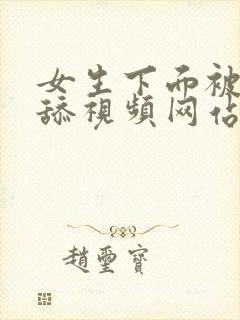 女生下面被
舔視頻网佔
趙璽寶